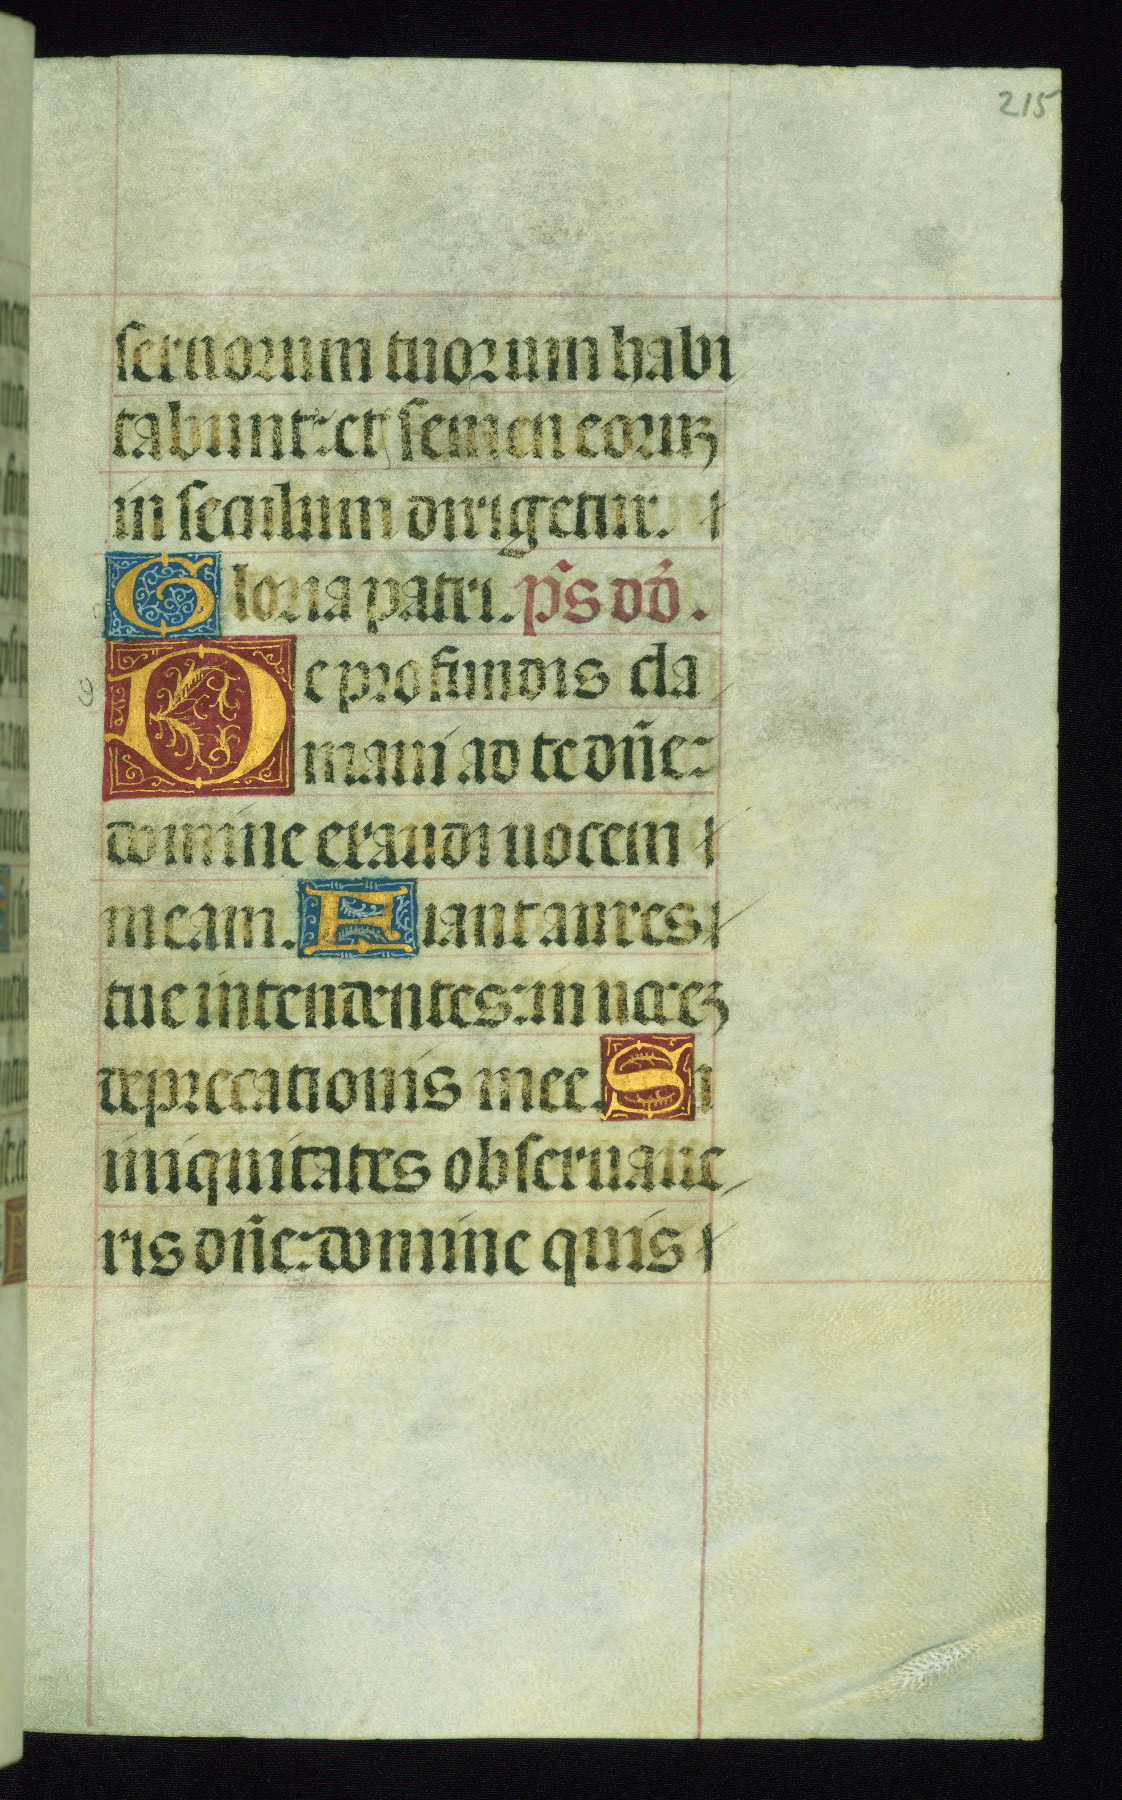 215
seruorum tuorum habi
tabunt: et semen eoruꝫ
in seculum dirigetur.
Gloria patri. p̄s dd̄.
De profundis cla
maui ad te dn̄e:
domine exaudi uocem
meam. Fiant aures
tue intendentes: in uoceꝫ
deprecationis mee. Si
iniquitates obseruaue
ris dn̄e: domine quis